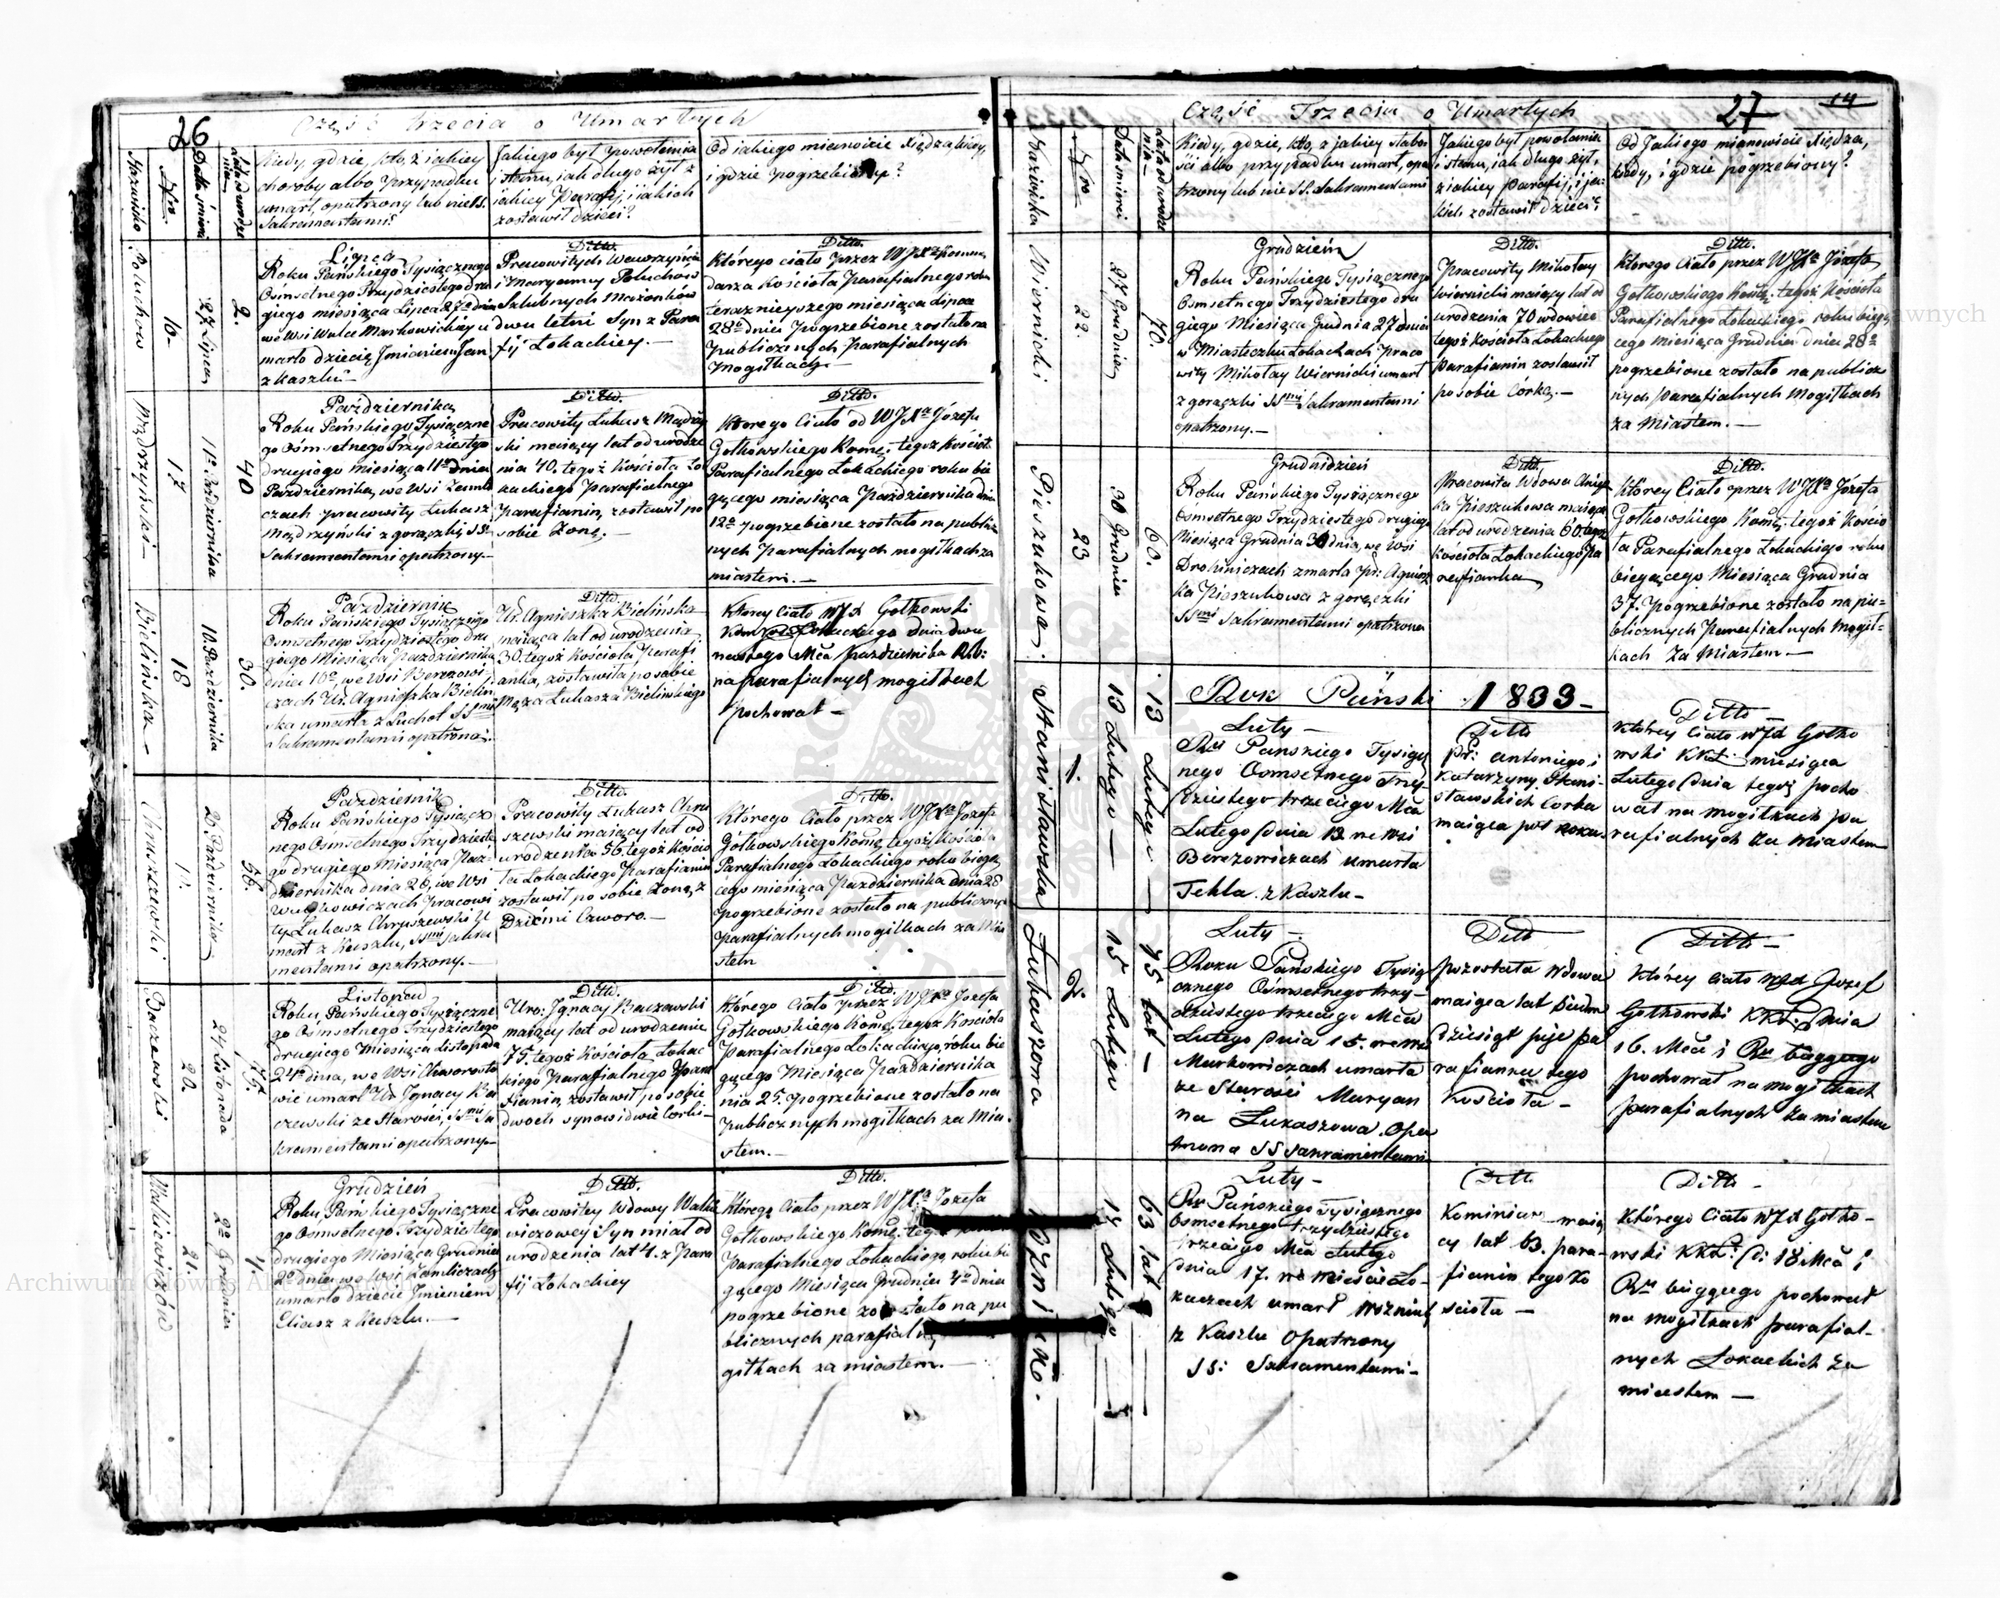 26
Część trzecia o Umarłych
Nazwisko
Nro
Data śmierci
Lata od urodze
nia
Kiedy, gdzie, kto, z iakiey
choroby albo przypadku
umarł, opatrzony lub nie SS.
Sakramentami?
Jakiego był powołania
i stanu, iak długo żył z
iakiey Parafij, i iakich
zostawił dzieci?
Od iakiego mianowicie Xiędza, kiedy,
i gdzie pogrzebiony?
Poluchow
16.
27. Lipca
2.
Lipca
Roku Pańskiego Tysiącznego
Osmsetnego Trzydziestego dru
giego miesiąca Lipca 27o dnia
we Wsi Wulce Markowickiey u
marło dziecię Jmieniem Jan
z kaszlu.
Ditto.
Pracowitych Wawrzyńca
i Maryanny Poluchow
Szlubnych Małżonków
dwu letni Syn z Para
fij Łokackiey.—
Ditto.
Którego ciało przez WJX Komen
darza Kościoła Parafialnego roku
teraznieyszego miesiąca Lipca
28o dnia pogrzebione zostało na
Publicznych Parafialnych
Mogiłkach.
Mądrzyński
17
11o Października
40
Października
Roku Pańskiego Tysiączne
go Osmsetnego Trzydziestego
drugiego miesiąca 11o dnia
Października, we Wsi Zamli
czach pracowity Łukasz
Mądrzyński z gorączki SS.
Sakramentami opatrzony.—
Ditto.
Pracowity Łukasz Mądrzyń
ski maiący lat od urodze
nia 40. tegoż Kościoła Ło
kackiego Parafialnego
Parafianin, zostawił po
sobie Żonę.
Ditto.
Ktorego Ciało od WJXa Józefa
Gołkowskiego Kome. tegoż Kościoł.
Parafialnego Łokackiego roku bie
gącego miesiąca Października dnia
12o pogrzebione zostało na publicz
nych Parafialnych mogiłkach za
miastem.—
Bielińska
18
10. Października
30.
Październik
Roku Pańskiego Tysiącznego
Osmsetnego Trzydziestego dru
giego Miesiąca Października
dnia 10o, we Wsi Berezowi
czach Ur. Agnieszka Bieliń
ska umarła z Suchot SSmi
Sakramentami opatrzona.
Ditto.
Ur. Agnieszka Bielińska
maiąca lat od urodzenia
30. tegoż Kościoła Parafi
anka, zostawiła po sobie
Męża Łukasza Bielińskiego
Ktorey Ciało WJX Gołkowski
Kom Łokackiego dnia dwu
nastego Mca Października R.b:
na parafialnych mogiłkach
pochował —
Chruszczewski
56.
Październik
Roku Pańskiego Tysiącz
nego Osmsetnego Trzydzieste
go drugiego Miesiąca Paź
dziernika dnia 26, we Wsi
Pracowi
ty Łukasz Chruszewski U
marł z Kaszlu, SSmi Sakra
mentami opatrzony.—
Ditto.
Pracowity Łukasz Chru
szewski maiący lat od
urodzenia 56. tegoż Kościo
ła Łokackiego Parafianin
zostawił po sobie Żonę, z
Dziećmi Czworo.—
Ditto.
Którego Ciało przez WJXa Jozefa
Gołkowskiego Kome. tegoż Kościoła
Parafialnego Łokackiego roku bieżą
cego miesiąca Października dnia 28
pogrzebione zostało na publicznych
parafialnych mogiłkach za Mia
stem
Baczewski
20.
24 Listopada
75.
Listopad
Roku Pańskiego Tysiączne
go Osmsetnego Trzydziestego
drugiego Miesiąca Listopada
24o dnia, we Wsi Chworosto
wie umarł Ur Jgnacy Ba
czewski ze starości, SSmi Sa
kramentami opatrzony.—
Ditto.
Uro: Jgnacy Baczewski
maiący lat od urodzenia
75. tegoż Kościoła Łokac
kiego Parafialnego Para
fianin, zostawił po sobie
dwoch synow i dwie Corki.—
Ditto.
Którego Ciało przez WJXa Jozefa
Gołkowskiego Kome. tegoż Kościoła
Parafialnego Łokackiego, roku bie
gącego Miesiąca Października
nia 25. pogrzebione zostało na
publicznych mogiłkach za Mia
stem.—
Walkiewiczów
21.
2o Grudnia
4.
Grudzień
Roku Pańskiego Tysiączne
go Osmsetnego Trzydziestego
drugiego Miesiąca Grudnia
2o dnia, we Wsi Zamliczach
umarło dziecie Jmieniem
Eliasz z Kaszlu.—
Ditto.
Pracowitey Wdowy Walkie
wiczowey Syn miał od
urodzenia lat 4. z Para
fij Łokackiey
Ditto.
Którego Ciało przez WJXa Jozefa
Gołkowskiego Kome. tegoż
Parafialnego Łokackiego, roku bi
gącego Miesiąca Grudnia 4o dnia
pogrzebione zostało na pu
blicznych parafial
giłkach za miastem.—
Część Trzecia o Umarłych
27
14
Nazwiska
Nro
Data śmierci
Lata od urodze
nia
Kiedy, gdzie, kto, z jakiey słabo
ści albo przypadku umarł, opa
trzony lub nie SS. Sakramentami
Jakiego był powołania
i stanu, iak długo żył,
z iakiey Parafij, i ja
kich zostawił dzieci?
Od Jakiego mianowicie Xiędza,
kiedy, i gdzie pogrzebiony?
Wiernicki
22.
27 Grudnia
70.
Grudzień
Roku Pańskiego Tysiącznego
Osmsetnego Trzydziestego dru
giego Miesiąca Grudnia 27 dnia
w Miasteczku Łokaczach Praco
wity Mikołay Wiernicki umarł
z gorączki SSmi Sakramentami
opatrzony.—
Ditto.
Pracowity Mikołay
Wiernicki maiący lat od
urodzenia 70 wdowiec
tegoż Kościoła Łokackiego
Parafianin zostawił
po sobie Córkę.—
Ditto.
Ktorego Ciało przez WJXa Józefa
Gołkowskiego Kome. tegoż Kościoła
Parafialnego Łokackiego roku bieg
cego miesiąca Grudnia dnia 28o
pogrzebione zostało na publicz
nych Parafialnych Mogiłkach
za Miastem.—
Pieszukowa
23
30 Grudnia
60.
Grudidzień
Roku Pańskiego Tysiącznego
Osmsetnego Trzydziestego drugiego
Miesiąca Grudnia 30 dnia, we Wsi
Drohiniczach zmarła Pr: Agniesz
ka Pieszukowa z gorączki
SSmi Sakramentami opatrzona
Ditto.
Pracowita Wdowa Agniesz
ka Pieszukowa maiąca
lat od urodzenia 60. tegoż
Kościoła Łokackiego Pa
rafianka
Ditto.
Ktorey Ciało przez WJXa Józefa
Gołkowskiego Kome. tegoż Kościo
ła Parafialnego Łokackiego roku
biegącego Miesiąca Grudnia
37. Pogrzebione zostało na pu=
blicznych Parafialnych Mogił=
kach za Miastem—
Rok Pański 1833—
Stanisławska
1.
13 Lutego—
Luty—
Ru Panskiego Tysią
nego Osmsetnego Trzy
dziestego trzeciego Mca
Lutego Dnia 13 we Wsi
Berezowiczach umarła
Tekla. z Kaszlu—
Ditto
Pr: antoniego i
Katarzyny Stani
sławskich Corka
maiąca poł roku.
Ditto
Ktorey Ciało WJX Gołko
wski KKŁ miesiąca
Lutego Dnia tegoż pocho
wał na mogiłkach pa
rafialnych za miastem
Łukaszowa
2.
15 Lutego
75 lat—
Luty—
Roku Pańskiego Tysią
cznego Osmsetnego trzy—
dziestego trzeciego Mca
Lutego Dnia 15. we Wsi
Markowiczach umarła
ze Starości Maryan
na Łukaszowa. Opa
trzona SS Sakramentami
Ditto
pozostała wdowa
maiąca lat siedm
dziesiąt pięć pa
rafianka tego
Kościoła—
Ditto—
Którey Ciało WJX Jozef
Gołkowski KKŁ. Dnia
16. Mca i Ru bieżącego
pochował na mogiłkach
parafialnych za miastem
Woźniuk.
17 Lutego
63 lat
Luty—
Ru Pańskiego Tysiącznego
Osmsetnego trzydziestego
trzeciego Mca Lutego
Dnia 17. w Mieście Ło-
kaczach umarł Wozniuk
z Kaszlu Opatrzony
SS: Sakramentami—
Ditto
Kominiar maią
cy lat 63. para-
fianin tego Ko
ścioła—
Ditto—
Którego Ciało WJX Gołko-
wski KKŁ. D: 18 Mca i
Ru bieżącego pochował
na mogiłkach parafial-
nych Łokackich za
miastem—